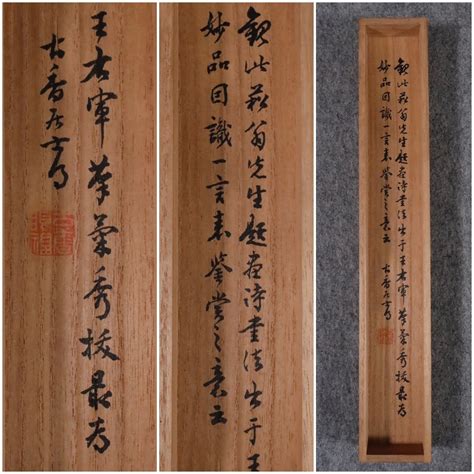 王右軍筆氣秀拔最為
古香居士
觀此萩翁先生題畫詩書法出于王
妙品因識一言表鑒賞之意云
觀此萩翁先生題畫詩書法出于王右軍筆氣秀拔最為
妙品因識一言表鑒賞之意云
古香居士